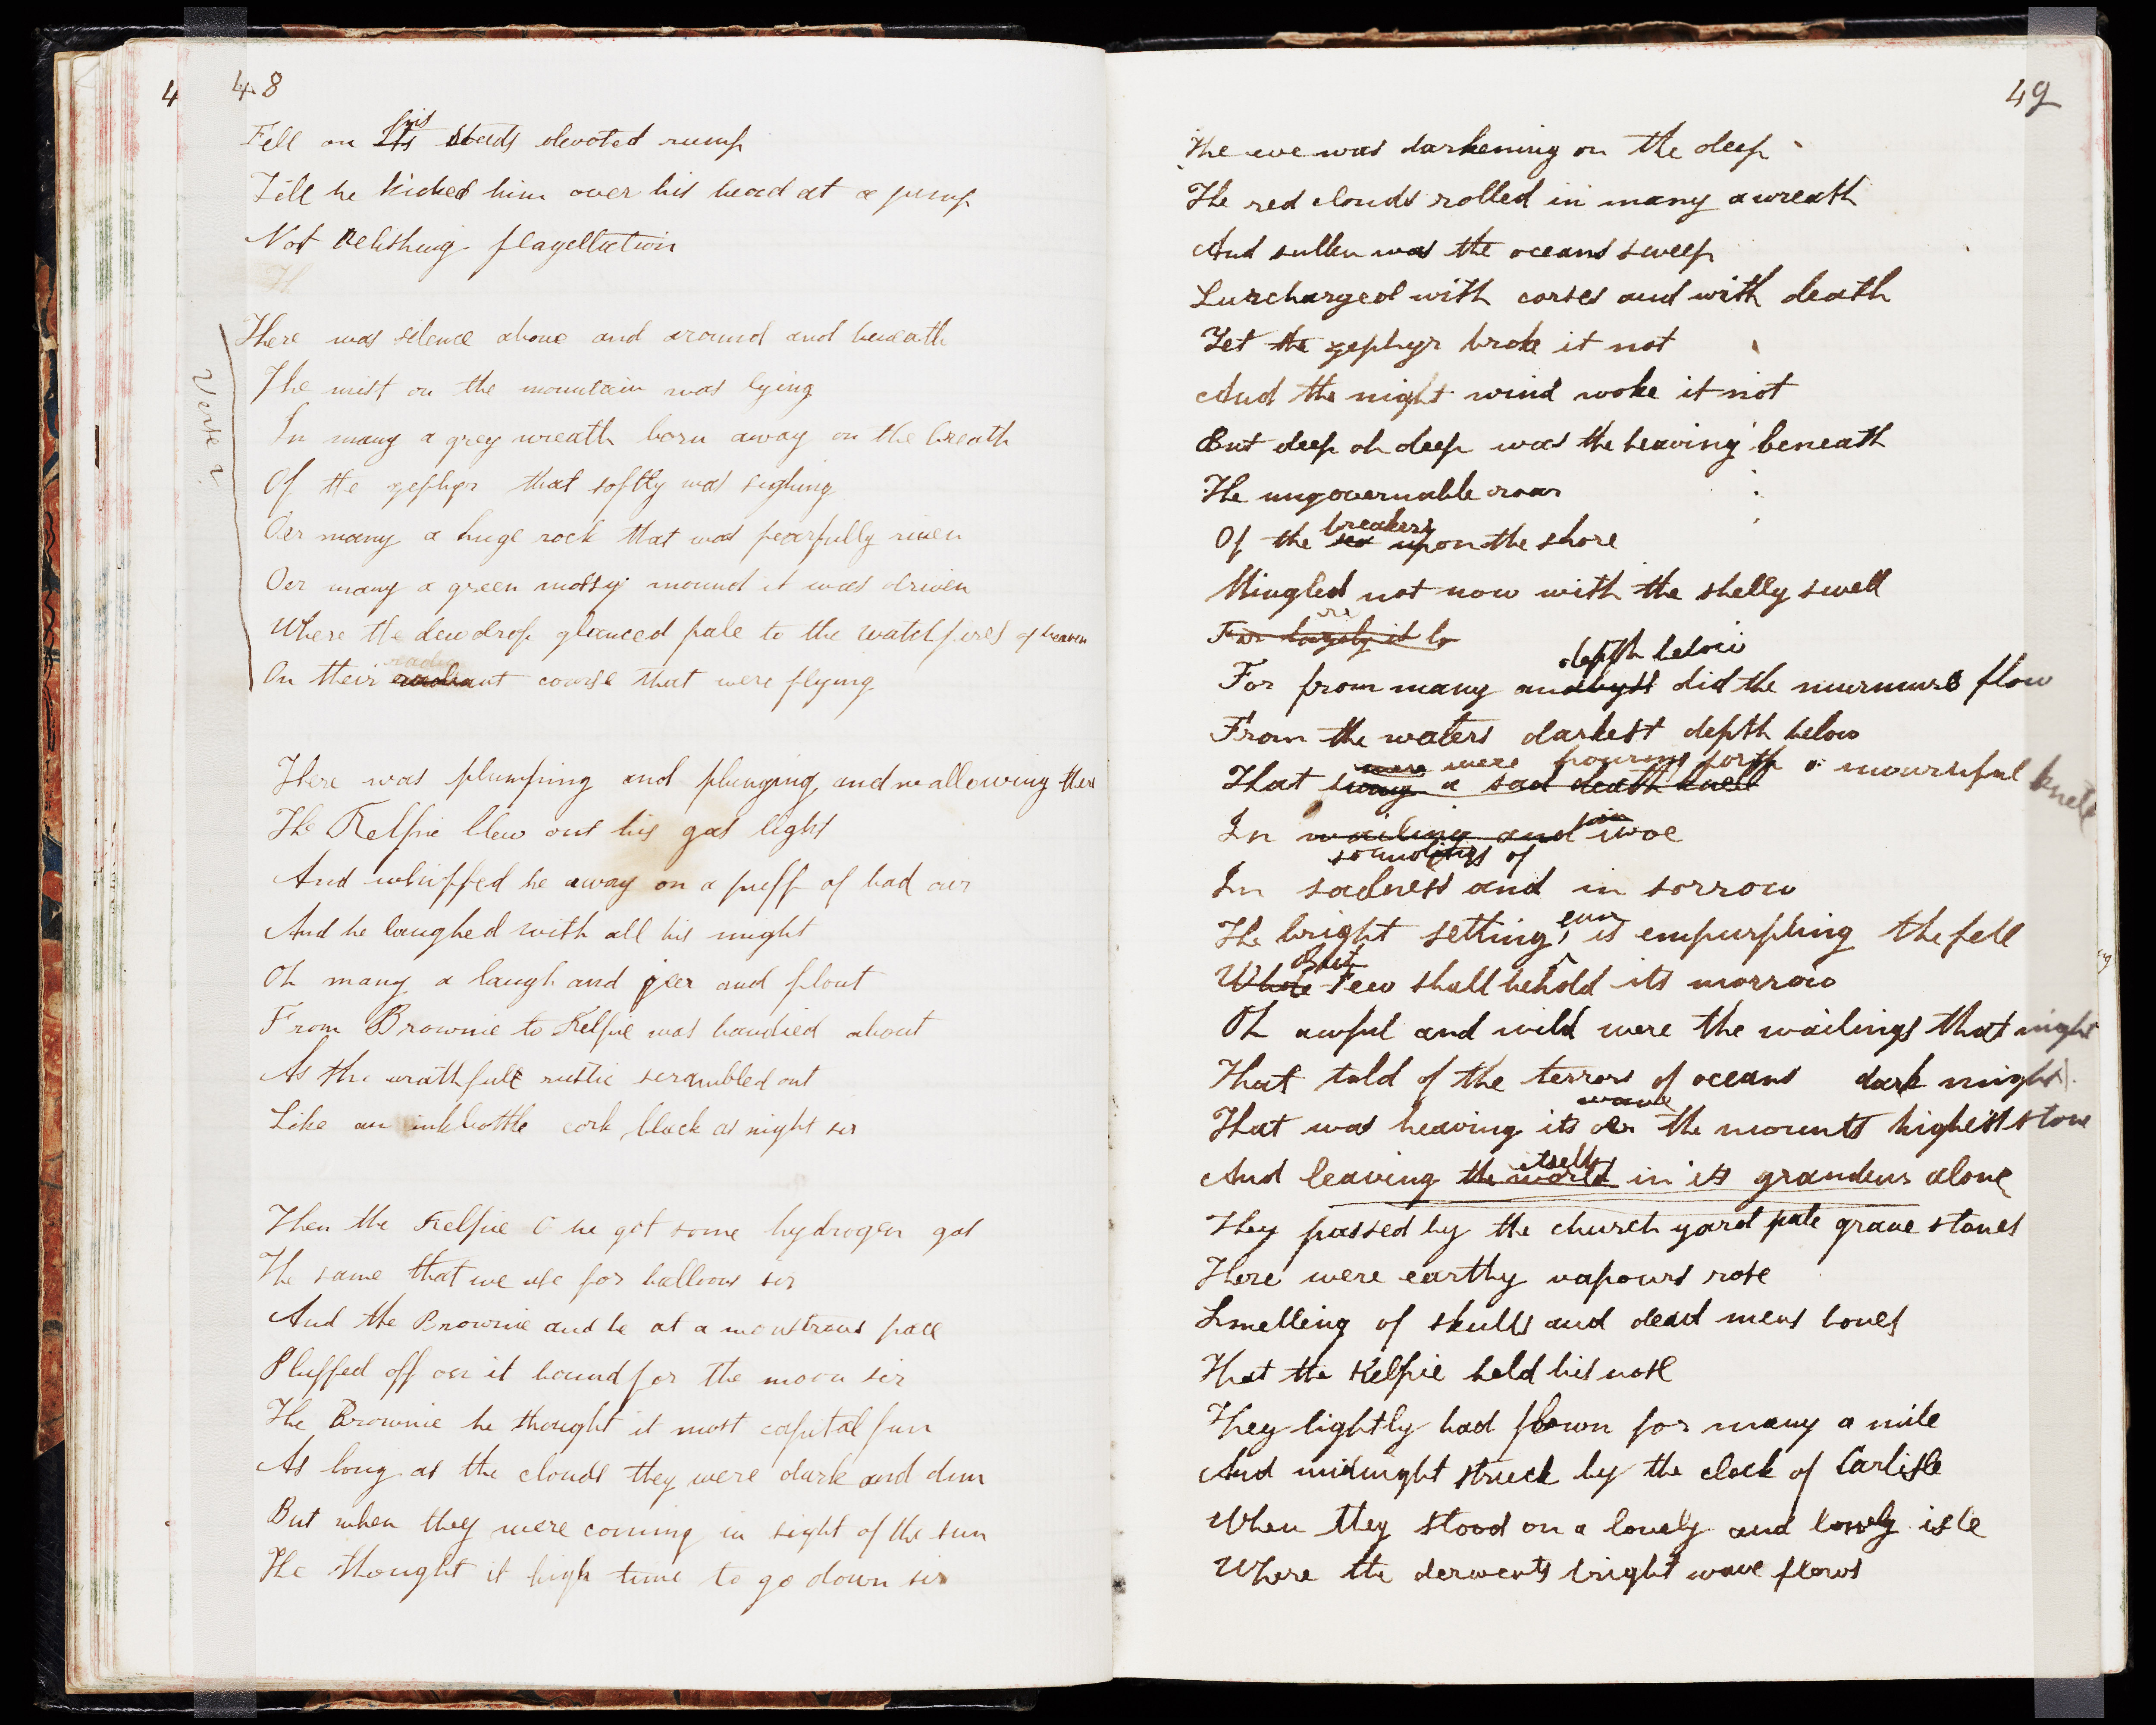 4
48
Fell on his steeds devoted rump
Till he kicked him over his head at a jump
Not Relishing flagellation
Verse 2
There was silence above and around and beneath
The mist on the mountain was lying
In many a grey wreath born away on the breath
Of the zephyr that softly was sighing
Oer many a huge rock that was fearfully riven
Oer many a green mossy mound it was driven
Where the dew drop glanced pale to the watchfires of heaven
On their radiant course that were flying
There was plumping and plunging and wallowing there
The Kelpie blew out his gas light
And whiffed he away on a puff of bad air
And he laughed with all his might
Oh many a laugh and jeer and flout
From Brownie to Kelpie was bandied about
As the wrathfull rustic scrambled out
Like an inkbottle cork black as night sir
Then the Kelpie O he got some hydrogen gas
The same that we use for balloons sir
And the Brownie and he at a monstrous pace
Puffed off on it bound for the moon sir
The Brownie he thought it most capital fun
As long as the clouds they were dark and dun
But when they were coming in sight of the sun
He thought it high time to go down sir
49
The eve was darkening on the deep
The red clouds rolled in many a wreath
And sullen was the oceans sweep
Surcharged with corses and with death
Yet the zephyr broke it not
And the night wind woke it not
But deep oh deep was the heaving beneath
The ungovernable roar
Of the sea breakers upon the shore
Mingled not now with the shelly swell
Far
depth below
For from many an abyss did the murmurs flow
From the waters darkest depth below
were were pouring forth a mournful knell
That sung a sad death knell
In wailing and in woe
soundings of
In sadness and in sorrow
The bright setting sun is empurpling the fell
But
Whole Few shall behold its morrow
Oh awful and wild were the wailings that night
That told of the terrors of oceans dark might
wave
That was heaving its oer the mounts highest stone
itself
And leaving the world in its grandeur alone
They passed by the church yard pale grave stones
There were earthy vapours rose
Smelling of skulls and dead mens bones
That the Kelpie held his nose
They lightly had flown for many a mile
And midnight struck by the clock of Carlisle
When they stood on a lonely and lowly isle
Where the derwents bright wave flows